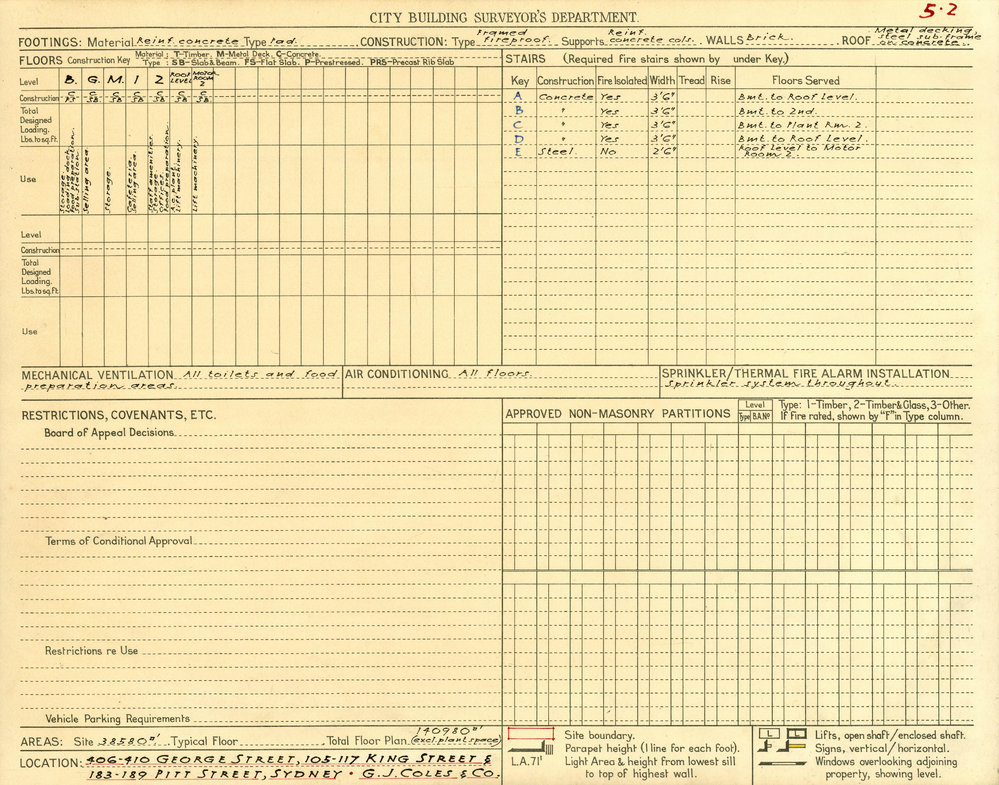 CITY BUILDING SURVEYOR'S DEPARTMENT.
5·2
FOOTINGS: Material Reinf. concrete Type Pad. CONSTRUCTION: Type Framed fireproof. Supports Reinf. concrete cols. WALLS Brick. ROOF Metal decking, steel sub-frame on concrete.
FLOORS Construction Key Material; T-Timber, M-Metal Deck, C-Concrete.
Type: SB-Slab & Beam. FS-Flat Slab. P-Prestressed. PRS-Precast Rib Slab
Level B. G. M. 1 2 ROOF LEVEL MOTOR ROOM 2
Construction C FS C SB C SB C SB C SB C SB C SB
Total Designed Loading. Lbs. to sq. ft.
Use
Storage loading dock food preparation. Sub-station.
Selling area
Storage.
Cafeteria Selling area
Staff amenities. Storage Offices food preparation.
A.c. plant. Lift machinery.
Lift machinery.
Level
Construction
Total Designed Loading. Lbs. to sq. ft.
Use
STAIRS (Required fire stairs shown by under Key.)
Key Construction Fire Isolated Width Tread Rise Floors Served
A Concrete Yes 3'6" Bmt. to Roof Level.
B " Yes 3'6" Bmt. to 2nd.
C " Yes 3'6" Bmt. to Plant Rm. 2.
D " Yes 3'6" Bmt. to Roof Level.
E Steel. No 2'6" Roof Level to Motor Room 2.
MECHANICAL VENTILATION All toilets and food preparation areas.
AIR CONDITIONING All floors.
SPRINKLER/THERMAL FIRE ALARM INSTALLATION
Sprinkler system throughout.
RESTRICTIONS, COVENANTS, ETC.
Board of Appeal Decisions
Terms of Conditional Approval
Restrictions re Use
Vehicle Parking Requirements
APPROVED NON-MASONRY PARTITIONS
Level
Type B.A. No
Type: 1-Timber, 2-Timber & Glass, 3-Other.
If fire rated, shown by "F" in Type column.
AREAS: Site 38580□' Typical Floor Total Floor Plan 140980□' (excl. plant space)
LOCATION: 406-410 GEORGE STREET, 105-117 KING STREET &
183-189 PITT STREET, SYDNEY • G. J. COLES & CO.
Site boundary.
Parapet height (1 line for each foot).
L.A. 71' Light Area & height from lowest sill
to top of highest wall.
L Lifts, open shaft/enclosed shaft.
Signs, vertical/horizontal.
Windows overlooking adjoining
property, showing level.